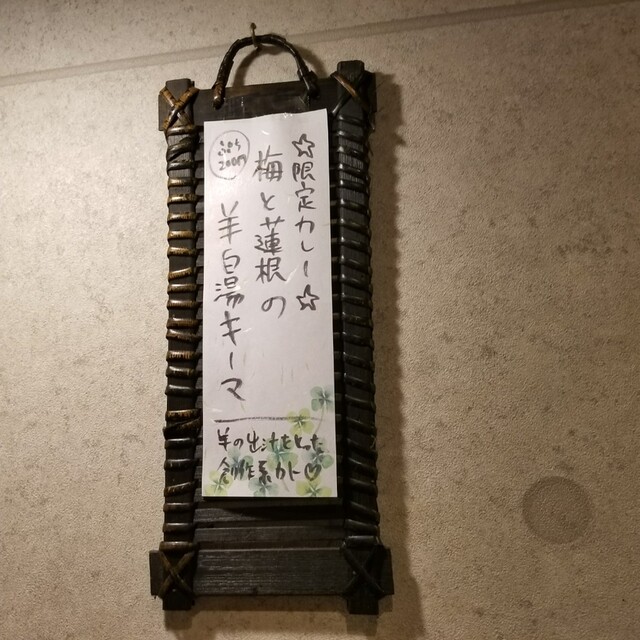 ☆限定カレー☆
梅と蓮根の
羊白湯キーマ
羊の出汁をとった
創作系カレー♡